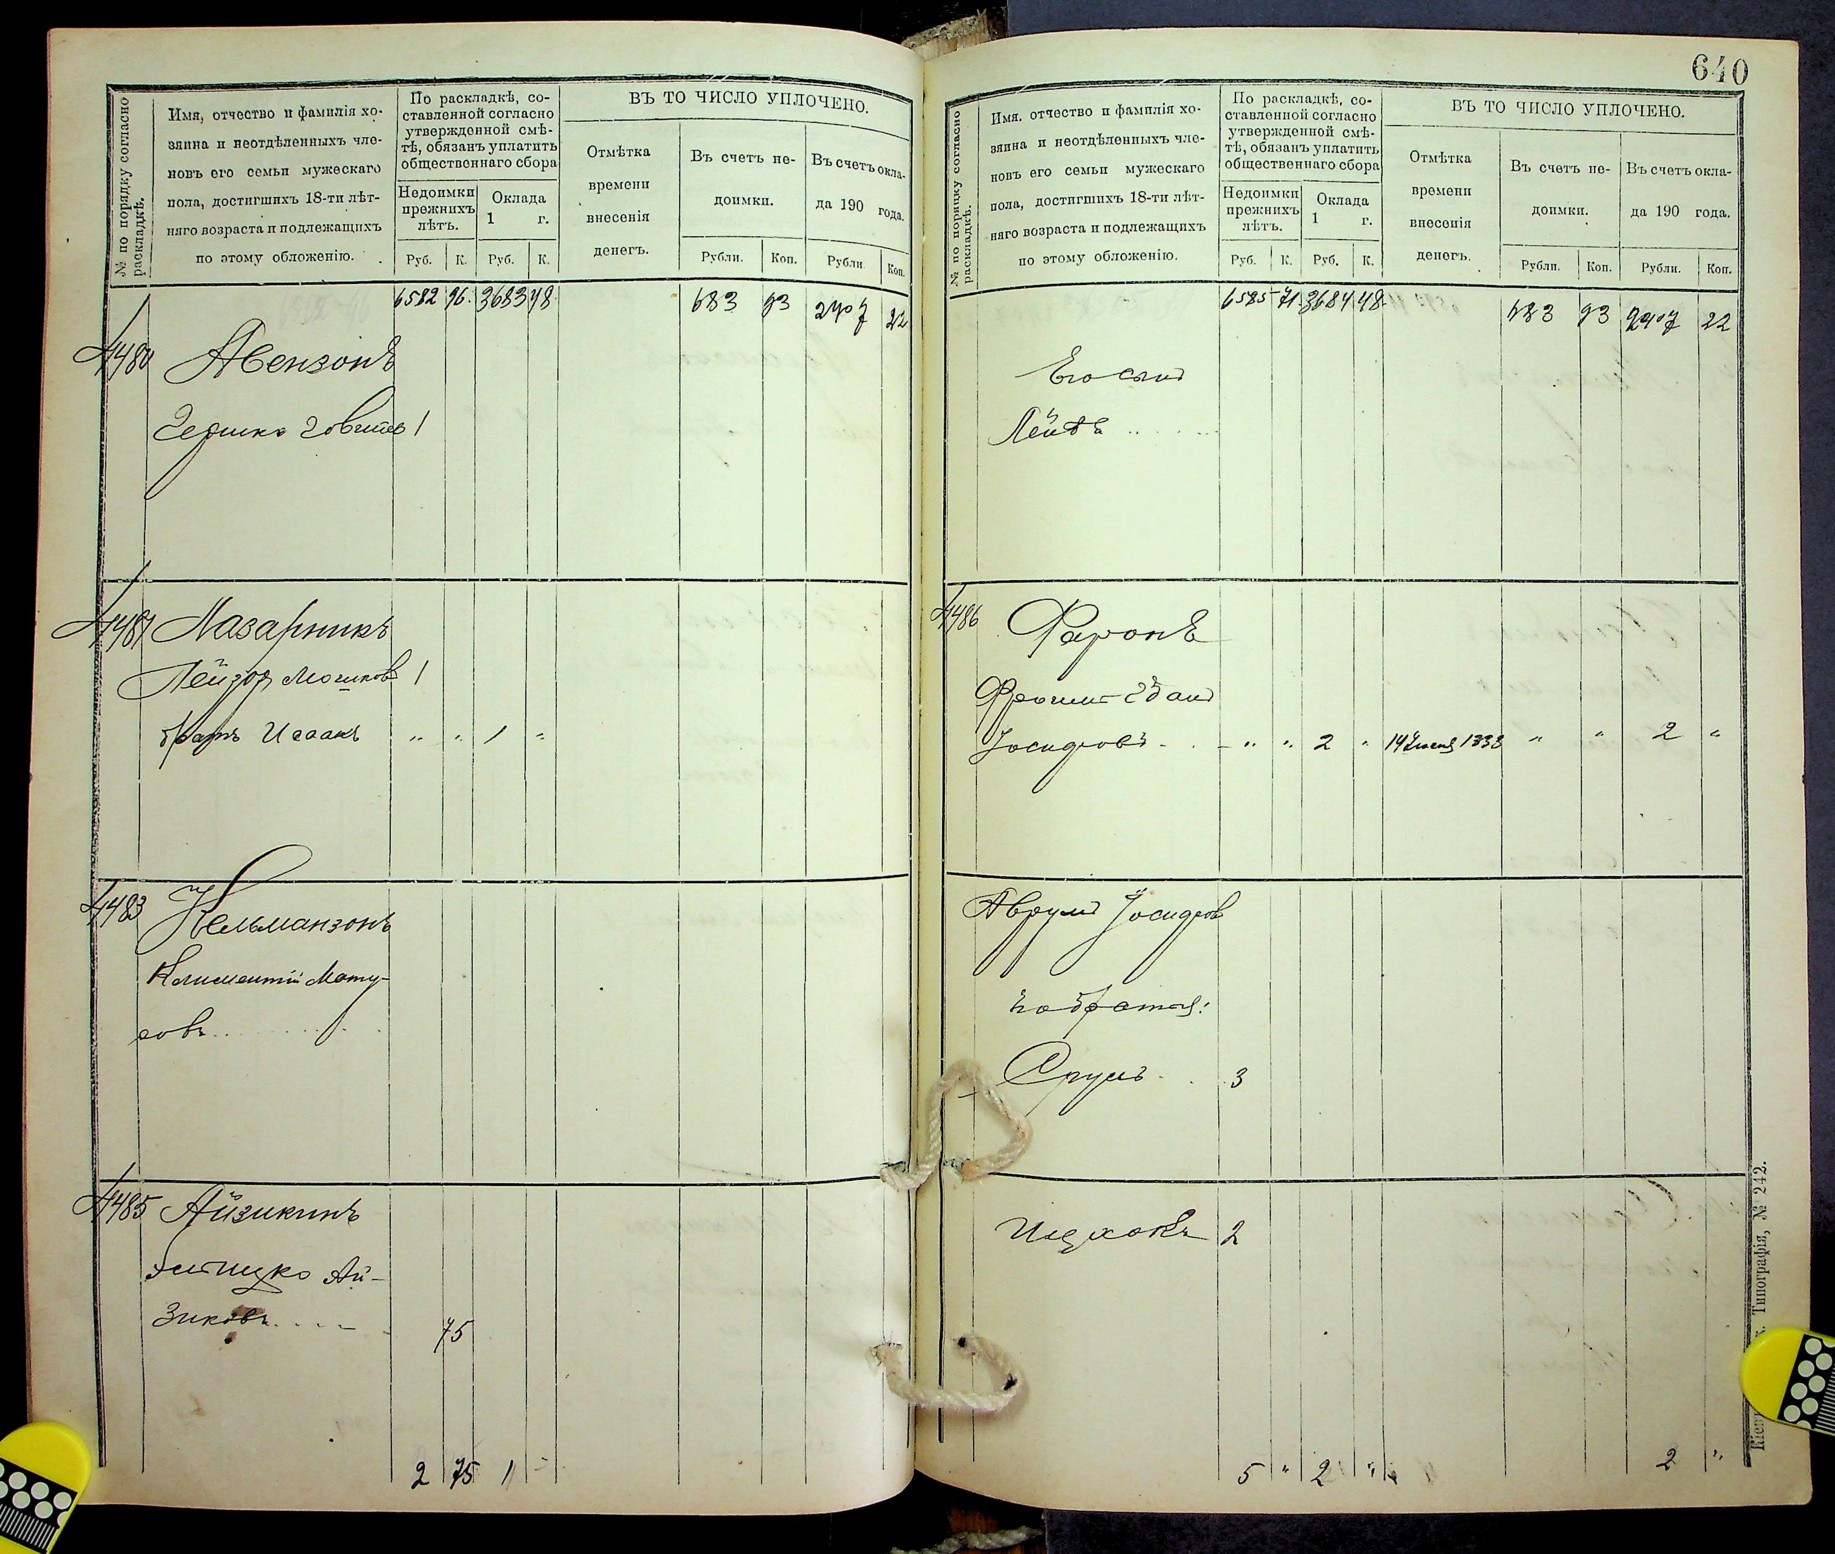 640
№ по порядку согласно
раскладкѣ.
Имя, отчество и фамилія хо-
зяина и неотдѣленныхъ чле-
новъ его семьи мужескаго
пола, достигшихъ 18-ти лѣт-
няго возраста и подлежащихъ
по этому обложенію.
По раскладкѣ, со-
ставленной согласно
утвержденной смѣ-
тѣ, обязанъ уплатить
общественнаго сбора
Недоимки
прежнихъ
лѣтъ.
Оклада
1 г.
Руб. К. Руб. К.
ВЪ ТО ЧИСЛО УПЛОЧЕНО.
Отмѣтка
времени
внесенія
денегъ.
Въ счетъ не-
доимки.
Въ счетъ окла-
да 190 года.
Рубли. Коп. Рубли Коп.
6582 96. 3683 48 683 93 2407 22
4480 Авензонъ
Гершко 1
4481 Лазарникъ
Лейзор Мошков 1
братъ Исаакъ " " 1 "
4483 Кельманзонъ
Климентій Мату-
совъ
4485 Айзикинъ
Ай-
зиковъ 75
2 75 1 "
№ по порядку согласно
раскладкѣ.
Имя. отчество и фамилія хо-
зяина и неотдѣленныхъ чле-
новъ его семьи мужескаго
пола, достигшихъ 18-ти лѣт-
няго возраста и подлежащихъ
по этому обложенію.
По раскладкѣ, со-
ставленной согласно
утвержденной смѣ-
тѣ, обязанъ уплатить
общественнаго сбора
Недоимки
прежнихъ
лѣтъ.
Оклада
1 г.
Руб. К. Руб. К.
ВЪ ТО ЧИСЛО УПЛОЧЕНО.
Отмѣтка
времени
внесенія
денегъ.
Въ счетъ не-
доимки.
Въ счетъ окла-
да 190 года.
Рубли. Коп. Рубли. Коп.
6585 71 3684 48 683 93 2407 22
Его сынъ
Лейба
4486 Фаронъ
Фроим
Іосифовъ " " 2 " 14 1333 " " 2 "
Аврумъ Іосифов
братья:
Срулъ 3
Ицхокъ 2
5 " 2 " 2 "
Типографія, № 242.